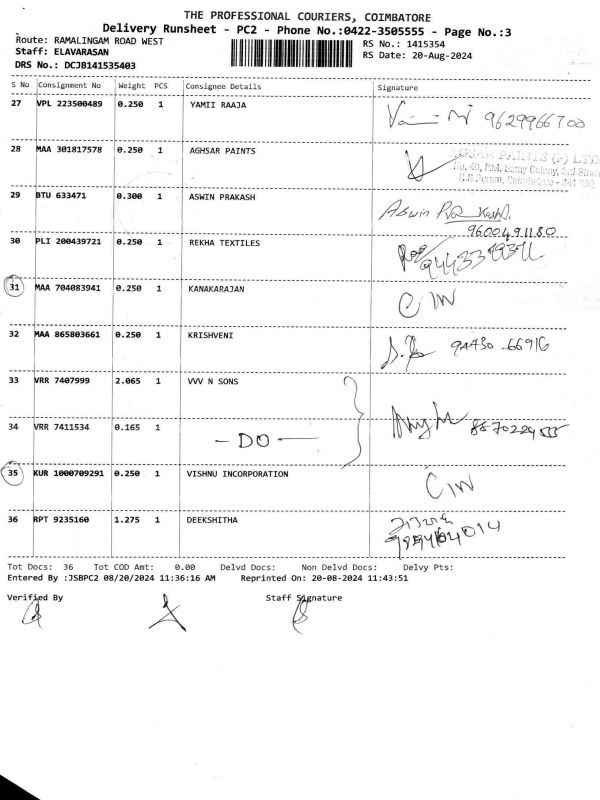 THE PROFESSIONAL COURIERS, COIMBATORE
Delivery Runsheet - PC2 - Phone No.:0422-3505555 - Page No.:3
Route: RAMALINGAM ROAD WEST RS No.: 1415354
Staff: ELAVARASAN RS Date: 20-Aug-2024
DRS No.: DCJB141535403
S No Consignment No Weight PCS Consignee Details Signature
27 VPL 223500489 0.250 1 YAMII RAAJA 9629966700
28 MAA 301817578 0.250 1 AGHSAR PAINTS
AGSAR PAINTS (P) LTD
No. 40, P.M. Samy Colony, 3rd Street
R.S.Puram, Coimbatore - 641 002
29 BTU 633471 0.300 1 ASWIN PRAKASH Aswin Prakash.
9600491180
30 PLI 200439721 0.250 1 REKHA TEXTILES
31 MAA 704083941 0.250 1 KANAKARAJAN C IW
32 MAA 865803661 0.250 1 KRISHVENI 94430 .66916
33 VRR 7407999 2.065 1 VVV N SONS
34 VRR 7411534 0.165 1 - DO -
35 KUR 1000709291 0.250 1 VISHNU INCORPORATION C IW
36 RPT 9235160 1.275 1 DEEKSHITHA
Tot Docs: 36 Tot COD Amt: 0.00 Delvd Docs: Non Delvd Docs: Delvy Pts:
Entered By :JSBPC2 08/20/2024 11:36:16 AM Reprinted On: 20-08-2024 11:43:51
Verified By Staff Signature